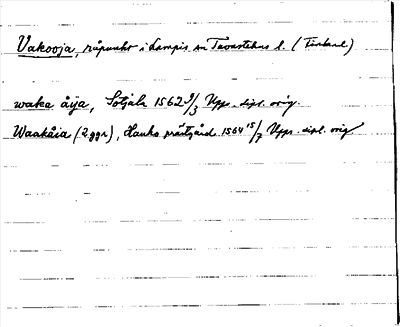 Vakooja, råpunkt i Lampis sn Tavastehus l. (Finland)
waka åÿa, Sotjala 1562 9/3 Upps. dipl. orig.
Waakåia (2 ggr), Hauho prästgård 1564 15/7 Upps. dipl. orig